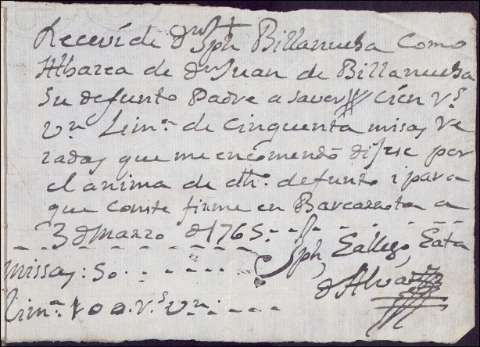 Receví de dn Jph Billanueba como
Albazea de dn Juan de Billanueba
su defunto Padre a saver cien Rs
vn Limna de cinquenta misas re
zadas que me encomendó dijese por
el anima de dho defunto i para
que conste firmé en Barcarrota a
3 d Marzo d 1765
Jph Gallego Gata
d Alvarez
missas: 50
Limna 100 Rs Vn